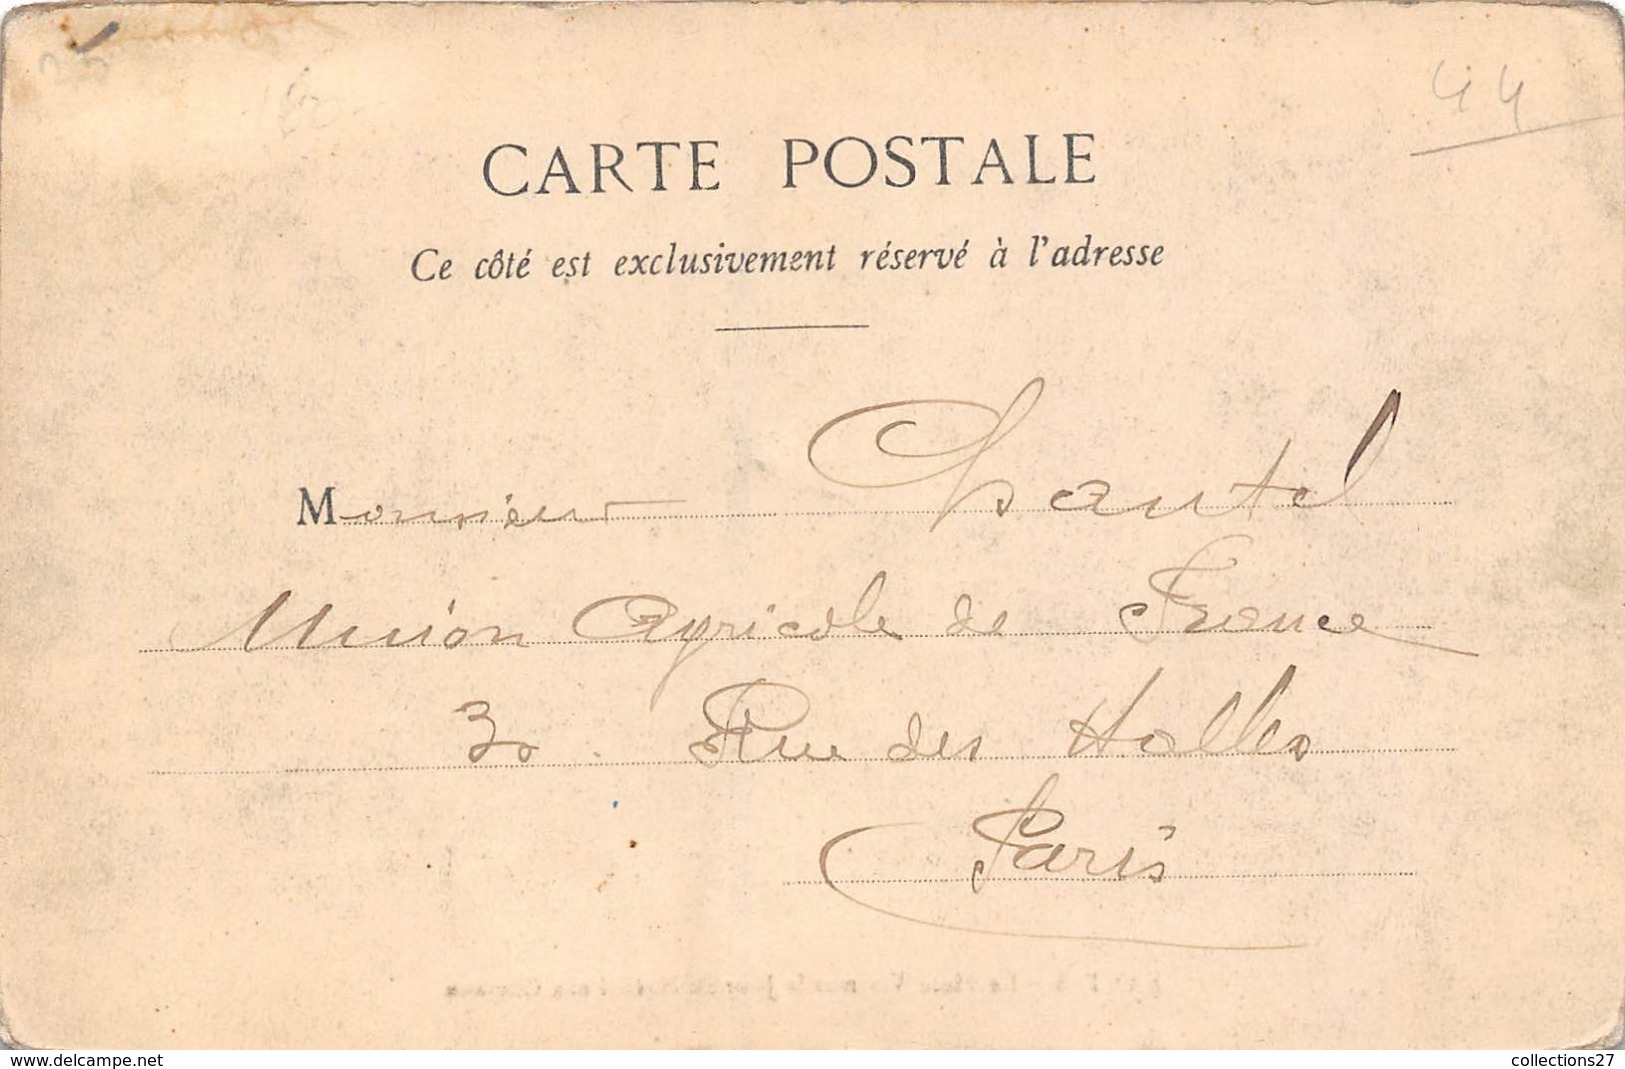 44
CARTE POSTALE
Ce côté est exclusivement réservé à l'adresse
Monsieur Chantel
Union Agricole de France
30 Rue des Halles
Paris
www.delcampe.net
collections27